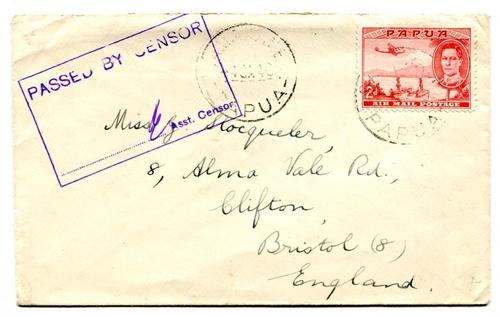 PASSED BY CENSOR
Asst. Censor
PAPUA
PAPUA
2d
AIR MAIL POSTAGE
PAPUA
Miss J. Stocqueler,
8, Alma Vale Rd.,
Clifton,
Bristol (8)
England.